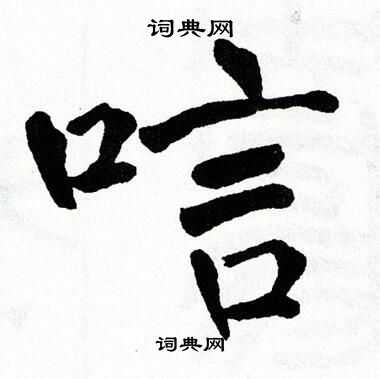 词典网
唁
词典网